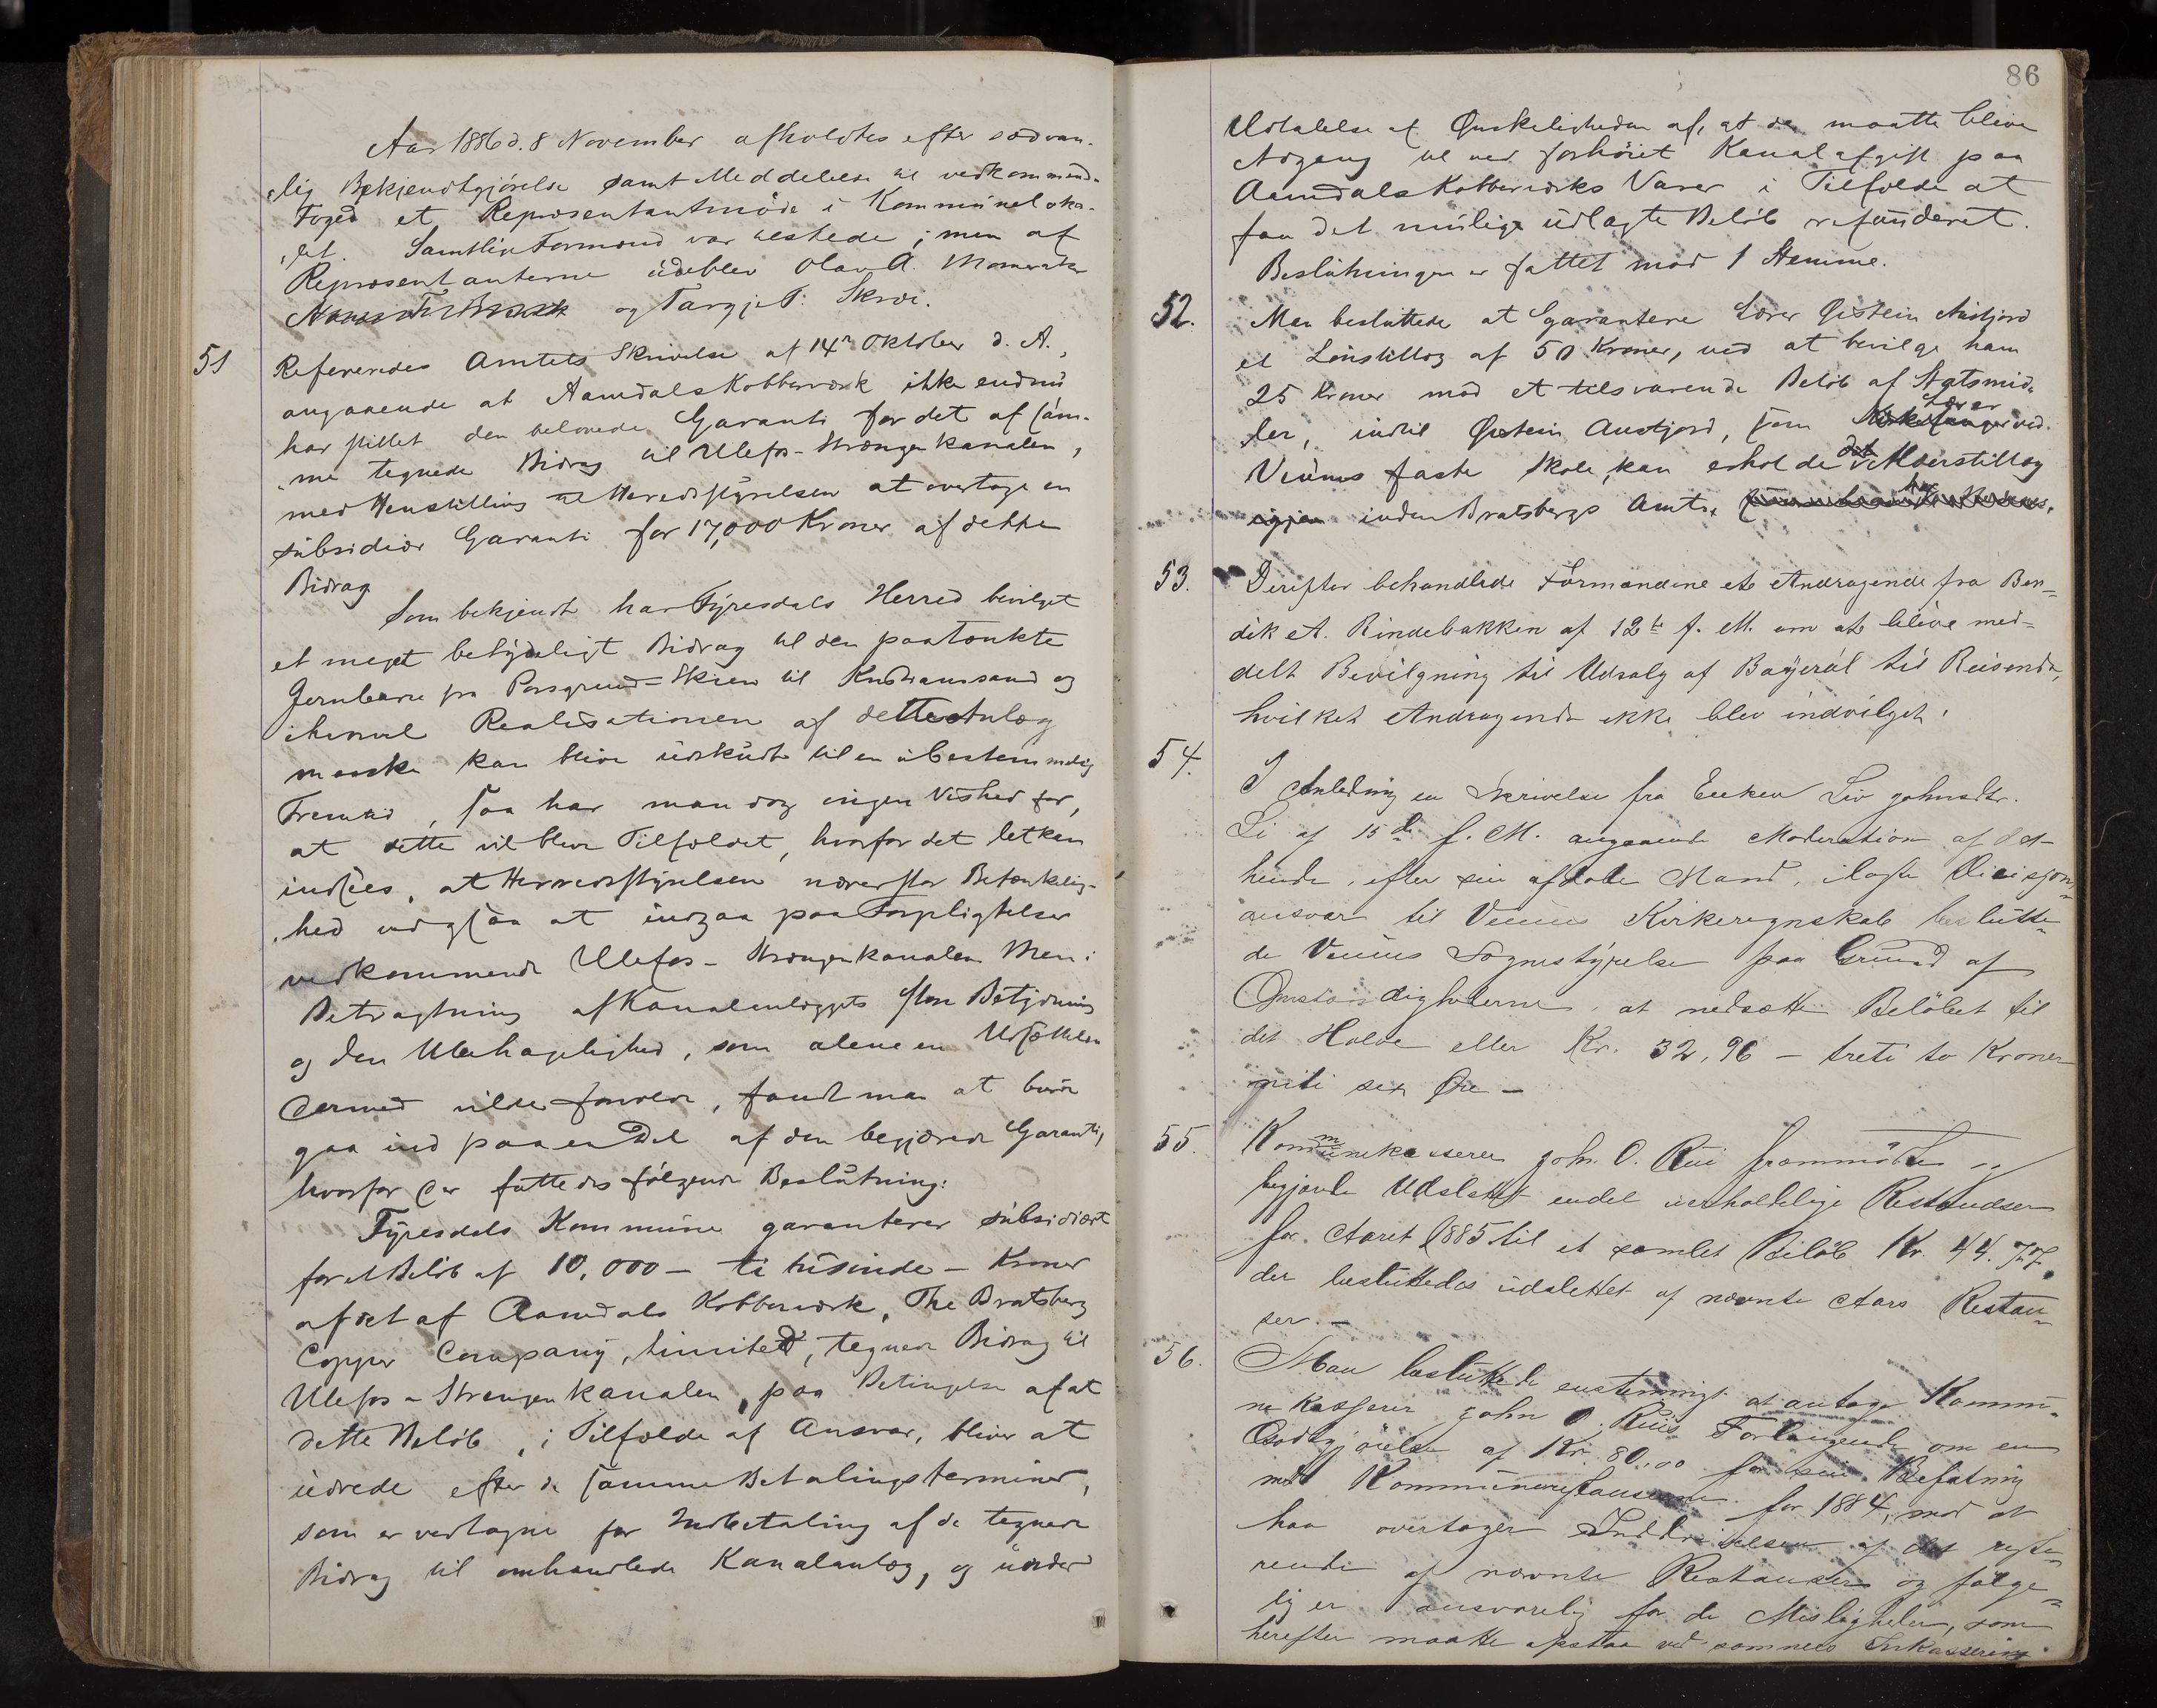 Aar 1886 d. 8 November afholdtes efter sædvan-
lig Bekjendtgjørelse samt Meddelelse til vedkommende
Foged et Repræsentantmøde i Kommuneloka-
let. Samtlige Formænd var tilstede; men af
Repræsentanterne udeblev Olav A.
og Targje T. Skræi.
51 Refereredes Amtets Skrivelse af 14de Oktober d. A.,
angaaende at Aamdals Kobberværk ikke endnu
har stillet den belovede Garanti for det af sam-
me tegnede Bidrag til Ulefos-Strængenkanalen,
med Henstilling til Herredsstyrelsen at overtage en
subsidiær Garanti for 17,000 Kroner af dette
Bidrag
Som bekjendt har Tyresdals Herred bevilget
et meget betydeligt Bidrag til den paatænkte
Jernbane fra Porsgrund-Skien til Kristianssand og
ihvorvel Realisationen af dette Anlæg
maaske kan blive udskudt til en ubestemmelig
Fremtid, saa har man dog ingen Vished for,
at dette vil blive Tilfældet, hvorfor det let kan
indsees, at Herredsstyrelsen nærer stor Betænkelig-
hed ved ogsaa at indgaa paa Forpligtelser
vedkommende Ulefos-Strængenkanalen. Men i
Betragtning af Kanalanlæggets store Betydning
og den Ubehagelighed, som alene en Udsættelse
dermed vilde forvolde, fandt man at burde
gaa ind paa en Del af den begjærede Garanti,
hvorfor der fattedes følgende Beslutning:
Tyresdals Kommune garanterer subsidiært
for et Beløb af 10,000 - ti tusinde - Kroner
af det af Aamdals Kobberværk, The Bratsberg
Copper Company, limited, tegnede Bidrag til
Ulefos-Strængenkanalen, paa Betingelse af at
dette Beløb, i Tilfælde af Ansvar, bliver at
udrede efter de samme Betalingsterminer,
som er vedtagne for Indbetaling af de tegnede
Bidrag til omhandlede Kanalanlæg, og under
86
Udtalelse af Ønskeligheden af, at der maatte blive
Adgang til ved forhøiet Kanalafgift paa
Aamdals Kobberværks Varer i Tilfælde at
faa det mulige udlagte Beløb refunderet.
Beslutningen er fattet mod 1 Stemme.
52. Man besluttede at garantere Lærer Øistein Austjord
et Lønstillæg af 50 Kroner, ved at bevilge ham
25 Kroner mod et tilsvarende Beløb af Statsmid-
ler, indtil Øistein Austjord, som Lærer ved
Veums faste Skole, kan erholde det Alderstillæg
inden Bratsbergs Amt.
53. Derefter behandlede Formændene et Andragende fra Ben-
dik A. Rindebakken af 12te f. M. om at blive med-
delt Bevilgning til Udsalg af Bayerøl til Reisende,
hvilket Andragende ikke blev indvilget.
54. I Anledning en Skrivelse fra Enken Liv Johnsdtr.
Li af 15de f. M. angaaende Moderation af det
hende, efter sin afdøde Mand, ilagte Decisjons-
ansvar til Veums Kirkeregnskab beslutte-
de Veums Sognestyrelse paa Grund af
Omstændighederne, at nedsætte Beløbet til
det Halve eller Kr. 32,96 - treti to Kroner
niti sex Øre -
55. Kommunekasserer John O. Rui fremmødte og
begjærte Udslettet endel uerholdelige Restandser
for Aaret 1885 til et samlet Beløb Kr. 44.77,
der besluttedes udslettet af nævnte Aars Restan-
ser. -
56. Man besluttede enstemmigt at antage Kommu-
nekasserer John O. Ruis Forlangende om en
Godtgjørelse af Kr. 80,00 for sin Befatning
med Kommunerestanserne for 1884, mod at
han overtager Inddrivelsen af det reste-
rende af nævnte Restanser og følge-
lig er ansvarlig for de Misligheder, som
herefter maatte opstaa ved sammes Inkassering.